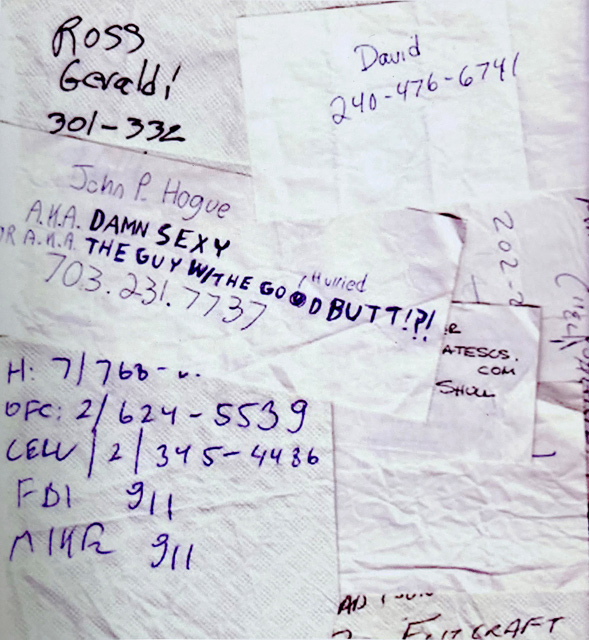 Ross
Geraldi
301-332
David
240-476-6741
John P. Hogue
A.K.A. DAMN SEXY
OR A.K.A. THE GUY W/THE GOOD BUTT!?!
I Hurried
703.231.7737
202-2
ATESCS.
COM
H: 7/768-
OFC: 2/624-5539
CELL/2/345-4436
911
911